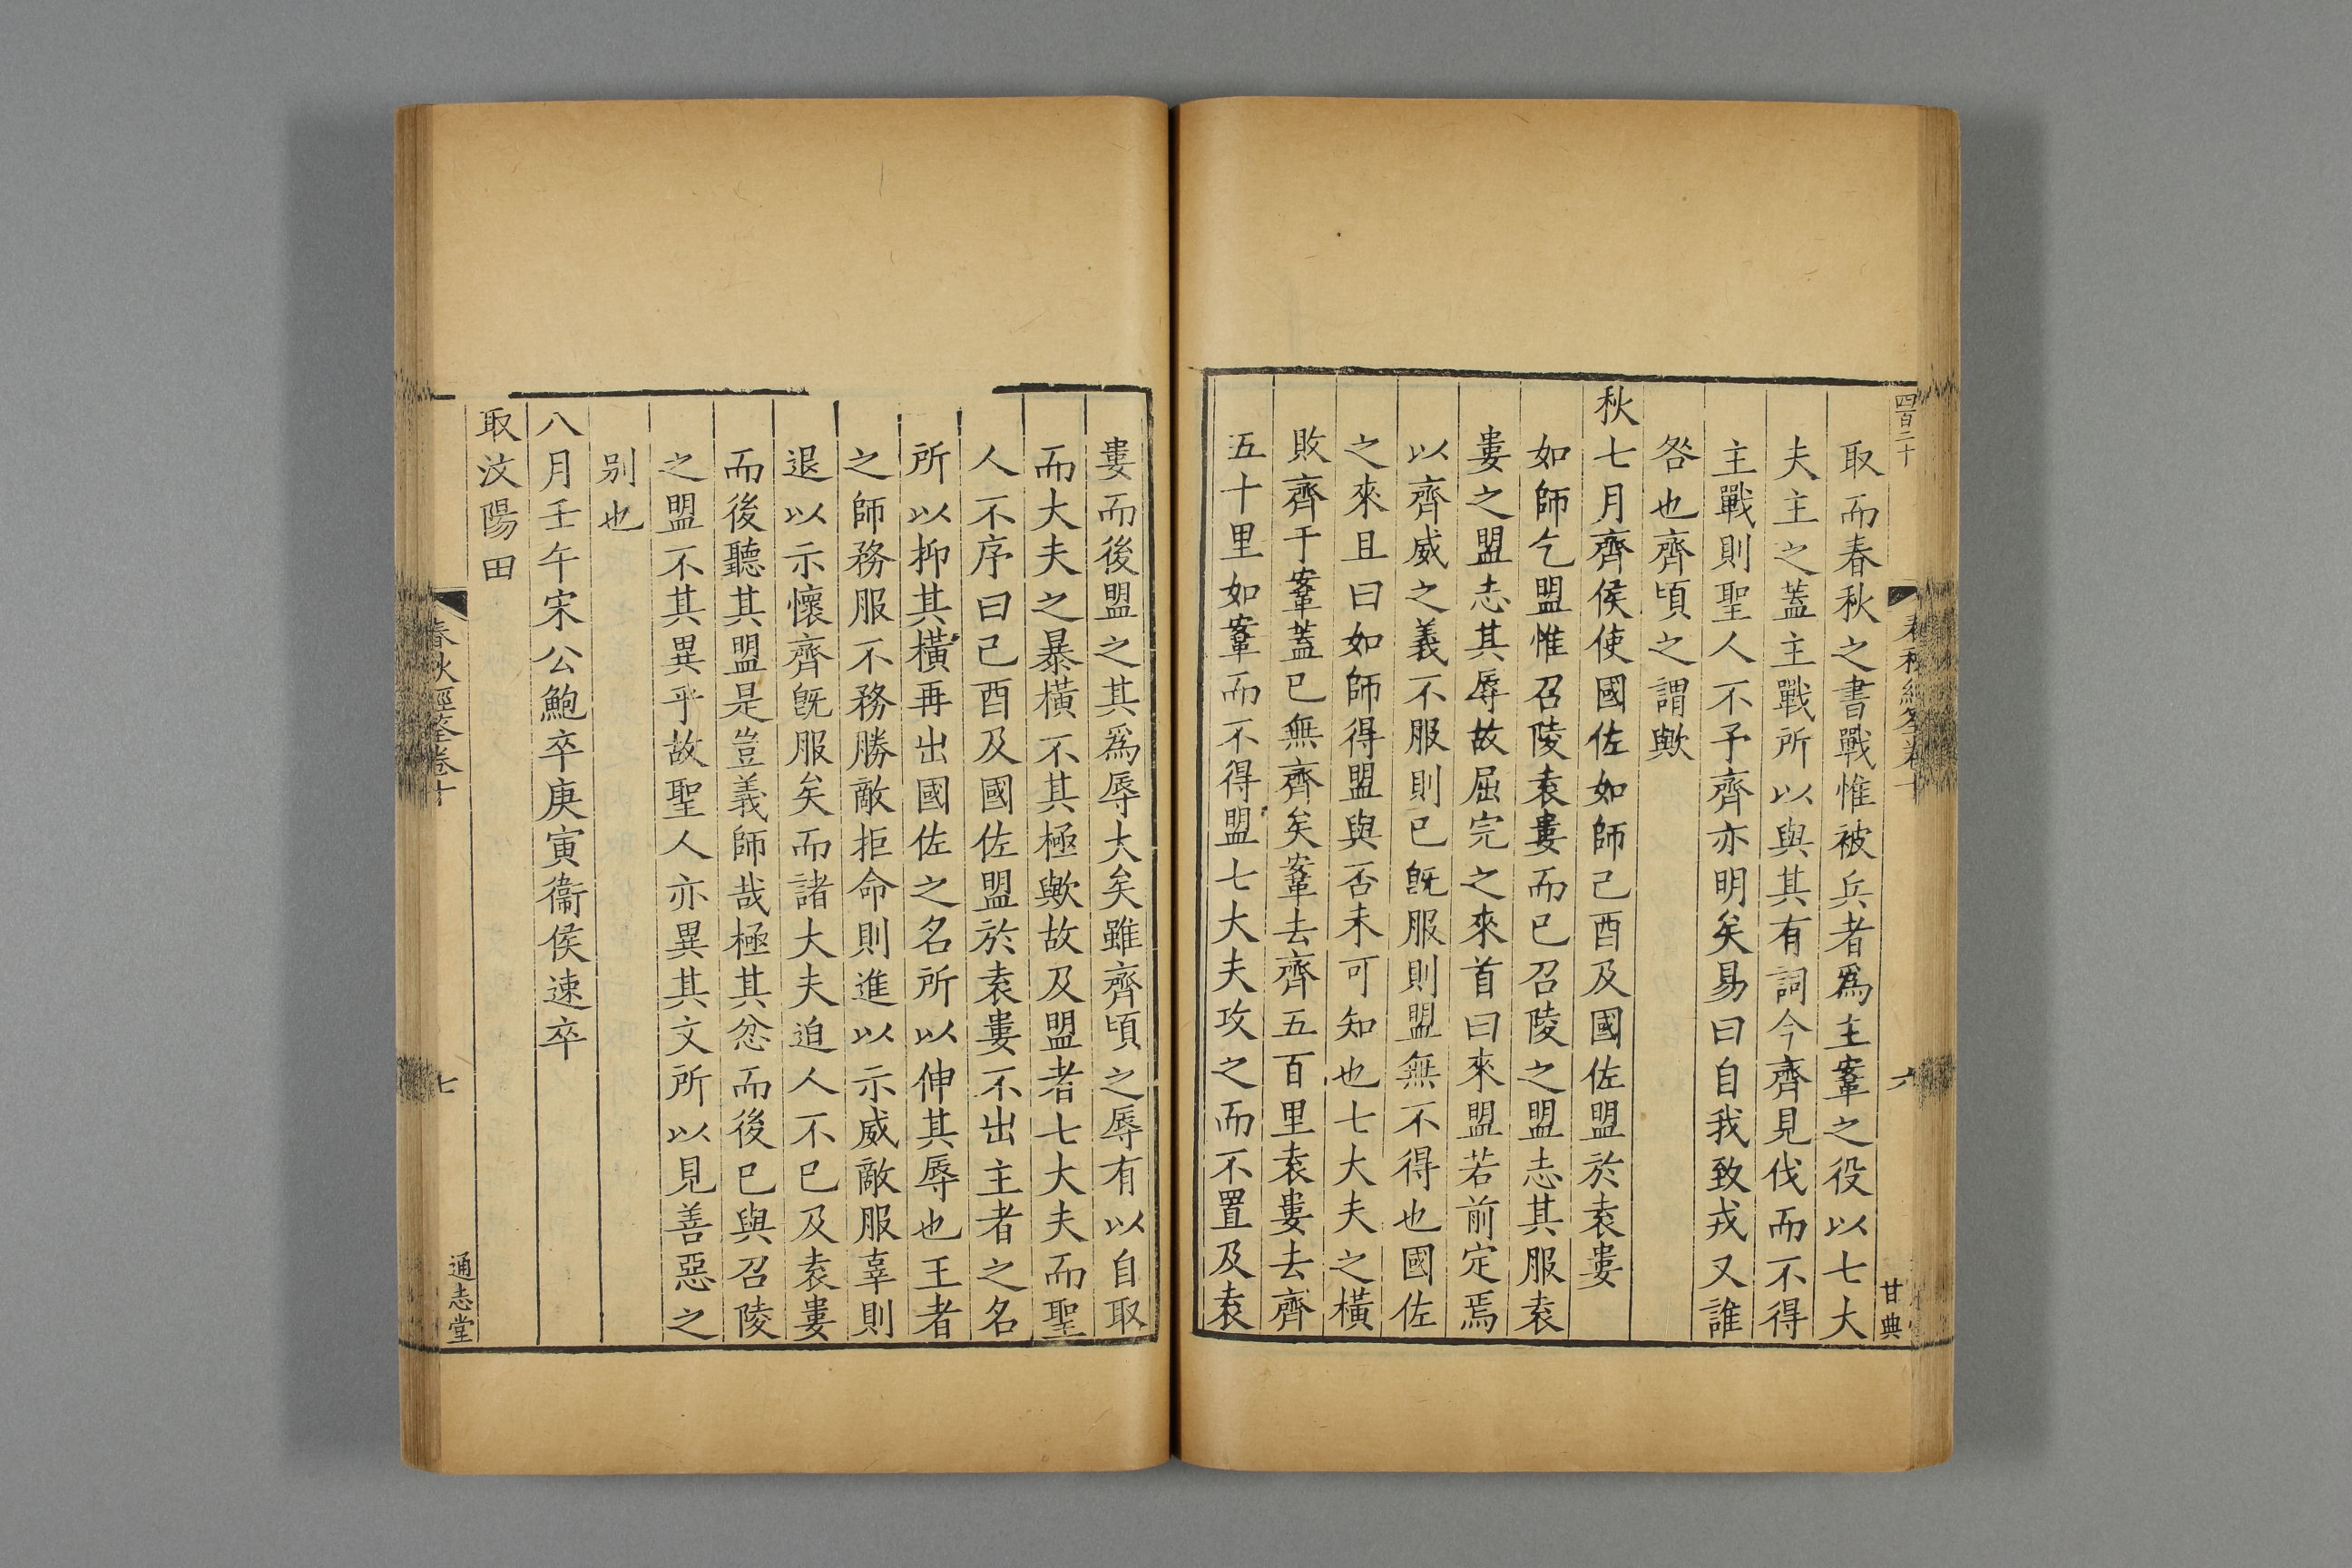 四百二十
春秋經筌卷十
六
甘典
取而春秋之書戰惟被兵者爲主鞌之役以七大
夫主之蓋主戰所以與其有詞今齊見伐而不得
主戰則聖人不予齊亦明矣易曰自我致戎又誰
咎也齊頃之謂歟
秋七月齊侯使國佐如師己酉及國佐盟於袁婁
如師乞盟惟召陵袁婁而已召陵之盟志其服袁
婁之盟志其辱故屈完之來首曰來盟若前定焉
以齊威之義不服則已旣服則盟無不得也國佐
之來且曰如師得盟與否未可知也七大夫之橫
敗齊于鞌蓋已無齊矣鞌去齊五百里袁婁去齊
五十里如鞌而不得盟七大夫攻之而不置及袁
婁而後盟之其爲辱大矣雖齊頃之辱有以自取
而大夫之暴橫不其極歟故及盟者七大夫而聖
人不序曰己酉及國佐盟於袁婁不出主者之名
所以抑其橫再出國佐之名所以伸其辱也王者
之師務服不務勝敵拒命則進以示威敵服辜則
退以示懷齊旣服矣而諸大夫迫人不已及袁婁
而後聽其盟是豈義師哉極其忿而後已與召陵
之盟不其異乎故聖人亦異其文所以見善惡之
别也
八月壬午宋公鮑卒庚寅衞侯速卒
取汶陽田
春秋經筌卷十
七
通志堂